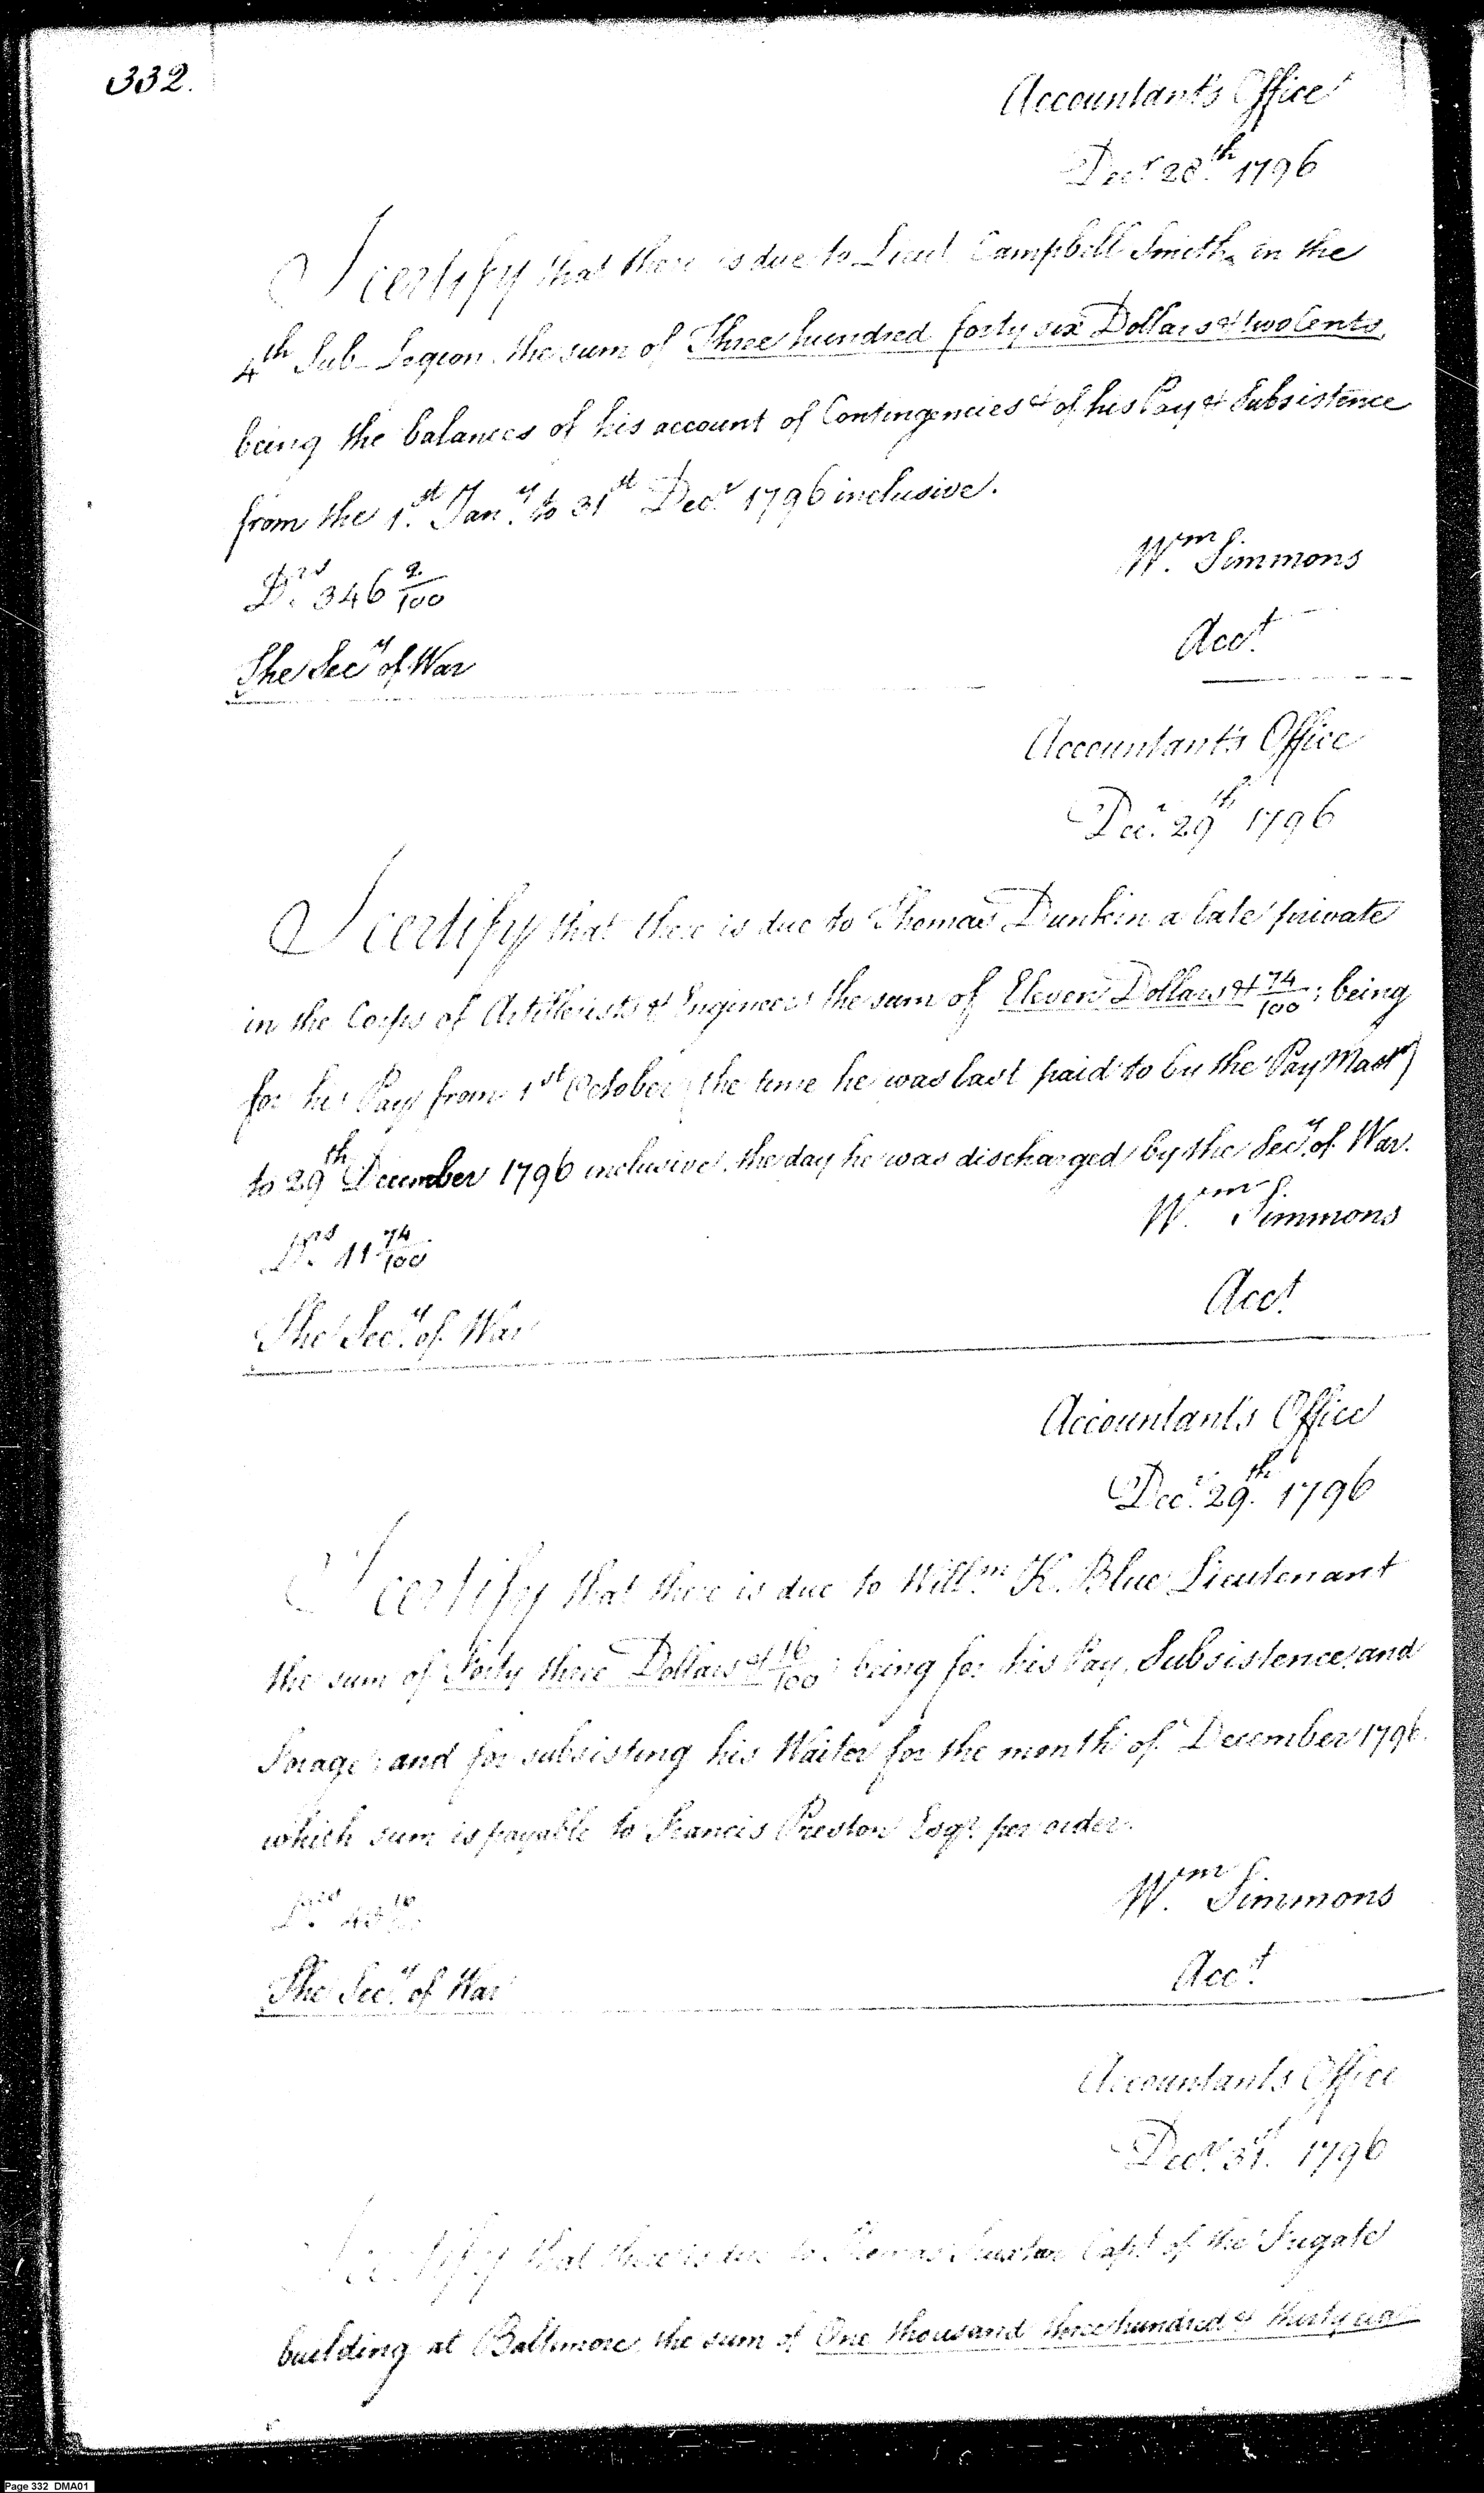 332.
Accountant's Office
Decr 28th 1796
I certify that there is due to Lieut Campbell Smith, in the
4th Sub-Legion the sum of Three hundred forty six Dollars & two Cents,
being the balances of his account of Contingencies & of his Pay & Subsistence
from the 1st Jany to 31st Decr 1796 inclusive.
Wm Simmons
Drs 346 2/100
Acct
The Secy of War
Accountant's Office
Decr 29th 1796
I certify that there is due to Thomas Dunkin a late private
in the Corps of Artillerists & Engineers the sum of Eleven Dollars & 74/100; being
for his Pay from 1st October (the time he was last paid to by the Pay Mastr)
to 29th December 1796 inclusive, the day he was discharged by the Secy of War.
Wm Simmons
Drs 11 74/100
Acct
The Secy of War
Accountant's Office
Decr 29th 1796
I certify that there is due to Willm K. Blue Lieutenant
the sum of Forty three Dollars & 16/100 being for his Pay, Subsistence and
Forage: and for subsisting his Waiter for the month of December 1796.
which sum is payable to Francis Preston Esqr per order.
Wm Simmons
Drs 43 16/100
Acct
The Secy of War
Accountant's Office
Decr 31st 1796
I certify that there is due to Thomas Truxton Capt of the Frigate
building at Baltimore, the sum of One thousand three hundred & thirty
Page 332 DMA01